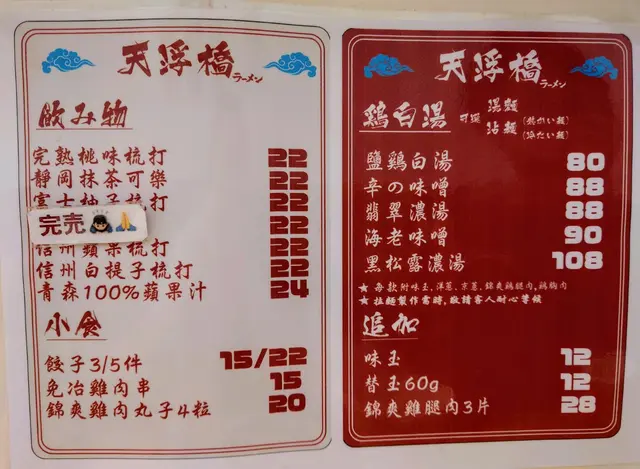 天浮橋
ラーメン
飲み物
完熟桃味梳打 22
靜岡抹茶可樂 22
富士柚子梳打 22
完売 22
信州蘋果梳打 22
信州白提子梳打 22
青森100%蘋果汁 24
小食
餃子3/5件 15/22
免治雞肉串 15
錦爽雞肉丸子4粒 20
天浮橋
ラーメン
鶏白湯 可選 湯麵 (熱かい麺)
沾麵 (冷たい麺)
鹽鶏白湯 80
辛の味噌 88
翡翠濃湯 88
海老味噌 90
黑松露濃湯 108
★ 每款附味玉,洋蔥,京蔥,錦爽鶏腿肉,鶏胸肉
★ 拉麵製作需時,敬請客人耐心等候
追加
味玉 12
替玉60g 12
錦爽雞腿肉3片 28